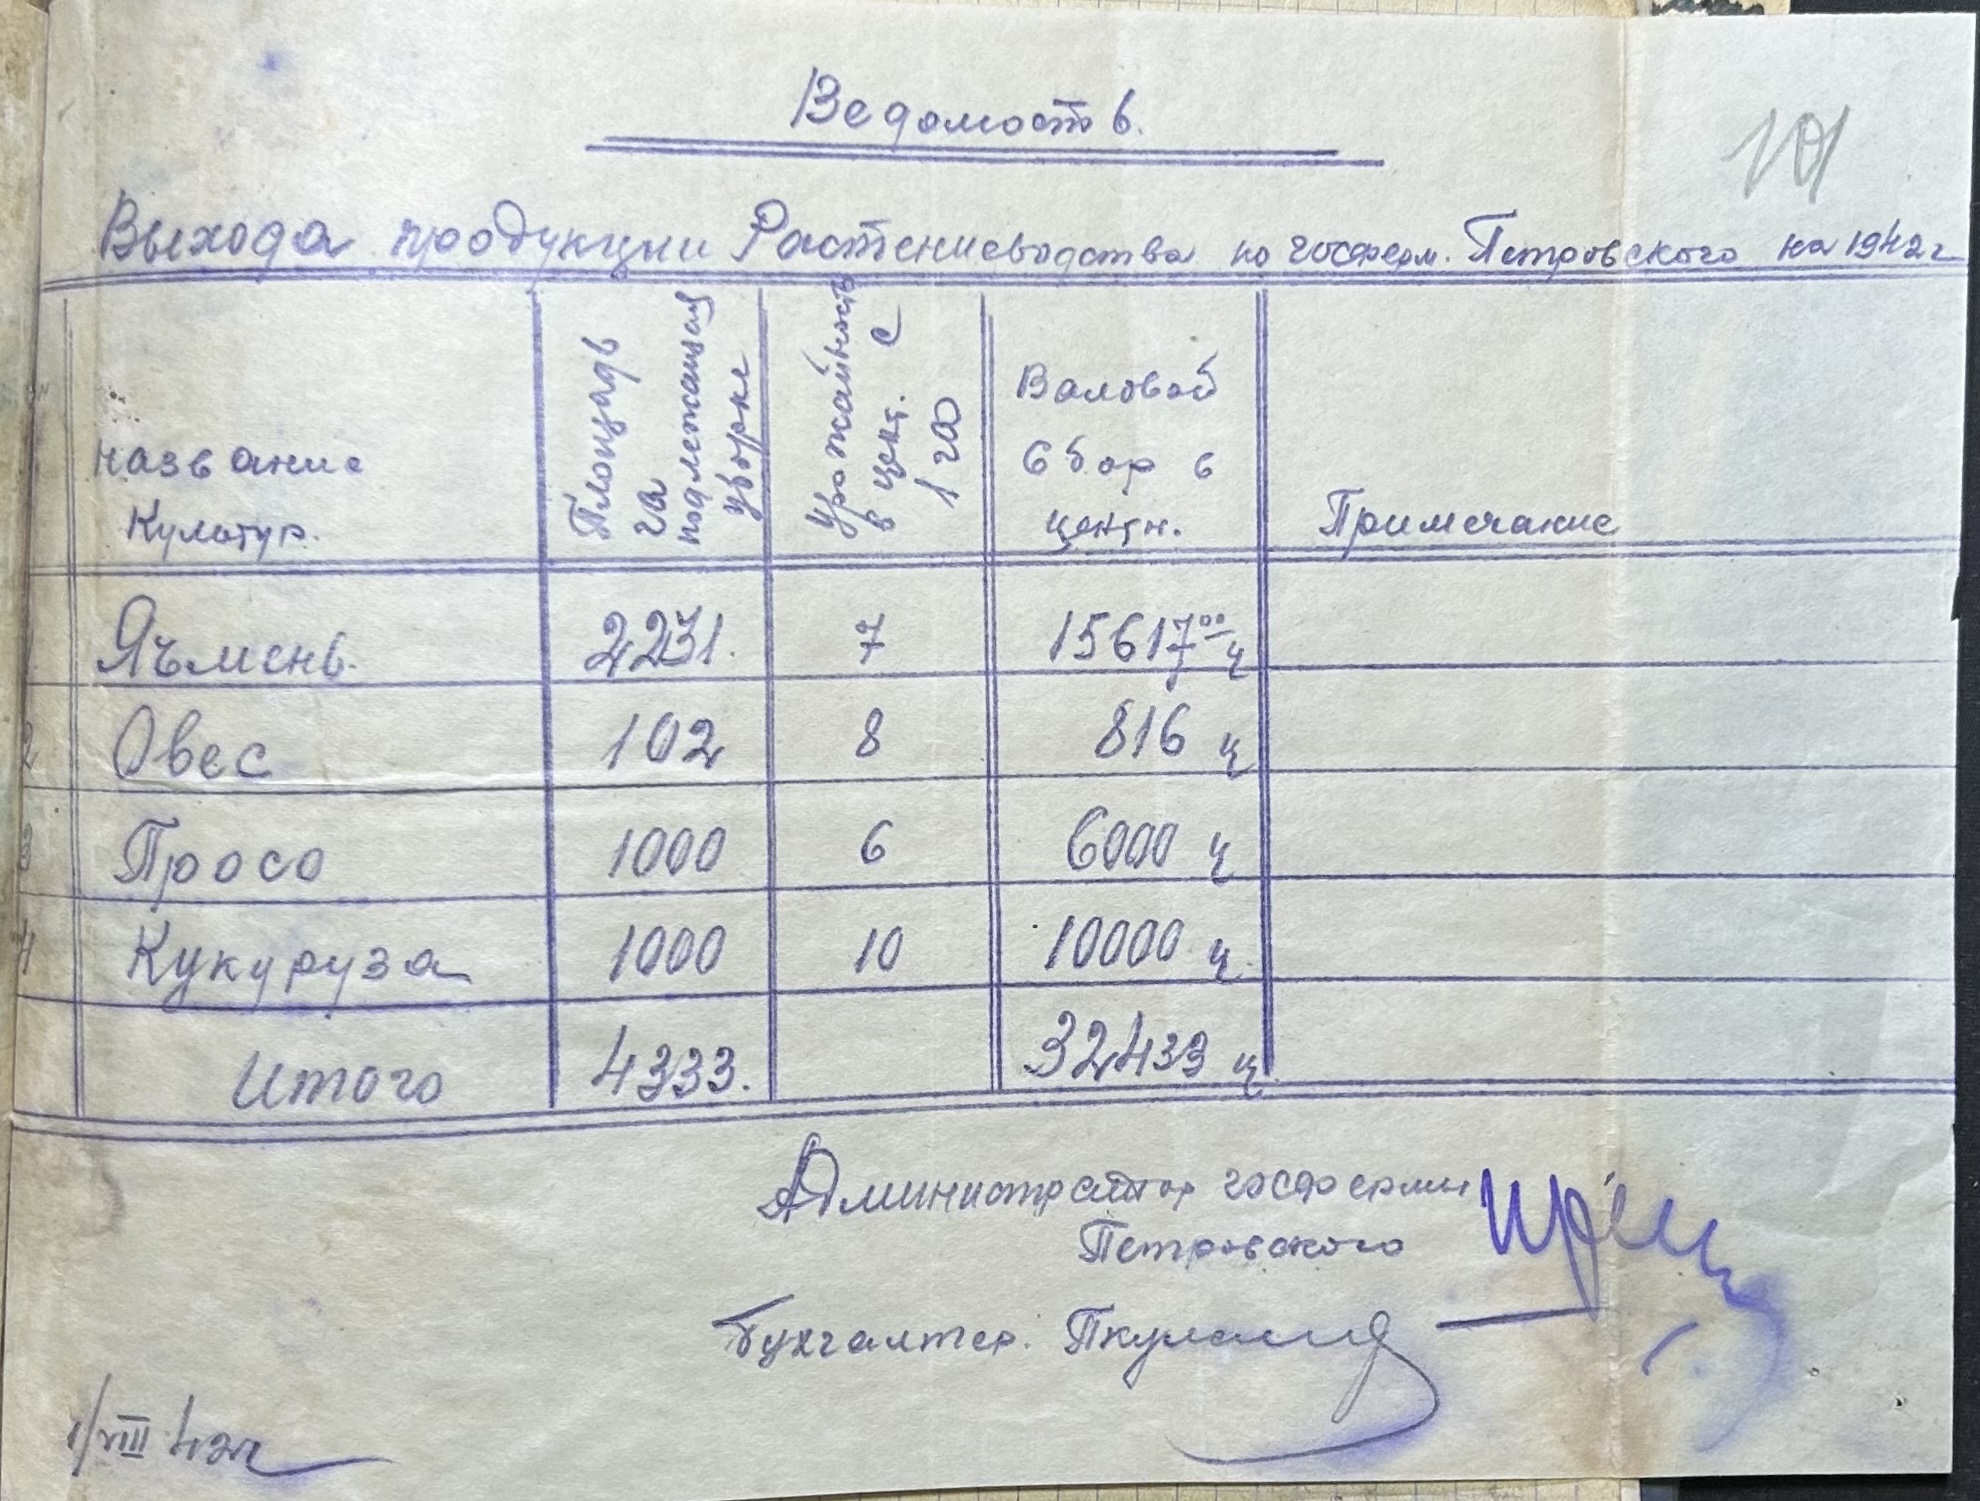 101
Ведомость.
Выхода продукции Растениеводства по госферм. Петровского на 1942 г
Название Культур.
Площадь га подлежащая уборке
Урожайность в цент. с 1 га
Валовой сбор в центн.
Примечание
1 Ячмень. 2231. 7 15617⁰⁰ ц
2 Овес 102 8 816 ц
3 Просо 1000 6 6000 ц
4 Кукуруза 1000 10 10000 ц.
Итого 4333. 32433 ц.
Администратор госфермы
Петровского
Бухгалтер.
1/VIII 42г